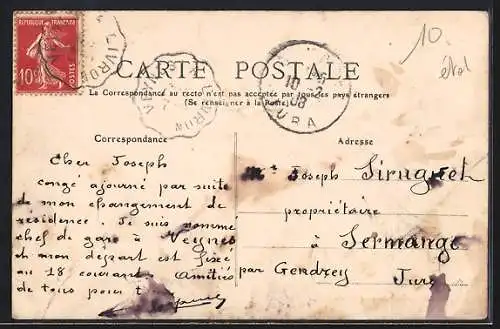 REPUBLIQUE FRANÇAISE
10c POSTES
LIVRON
10
CARTE POSTALE
LIVRON
10 -2
08
JURA
étol
La Correspondance au recto n'est pas acceptée par tous les pays étrangers
(Se renseigner à la Poste)
Correspondance
Cher Joseph
congé ajourné par suite
de mon changement de
résidence. Je suis nommé
chef de gare à Veynes
et mon départ est fixé
au 18 courant. Amitiés
de tous pour t
Adresse
Mr Joseph Sirugnet
propriétaire
à Sermange
par Gendrey
Jura